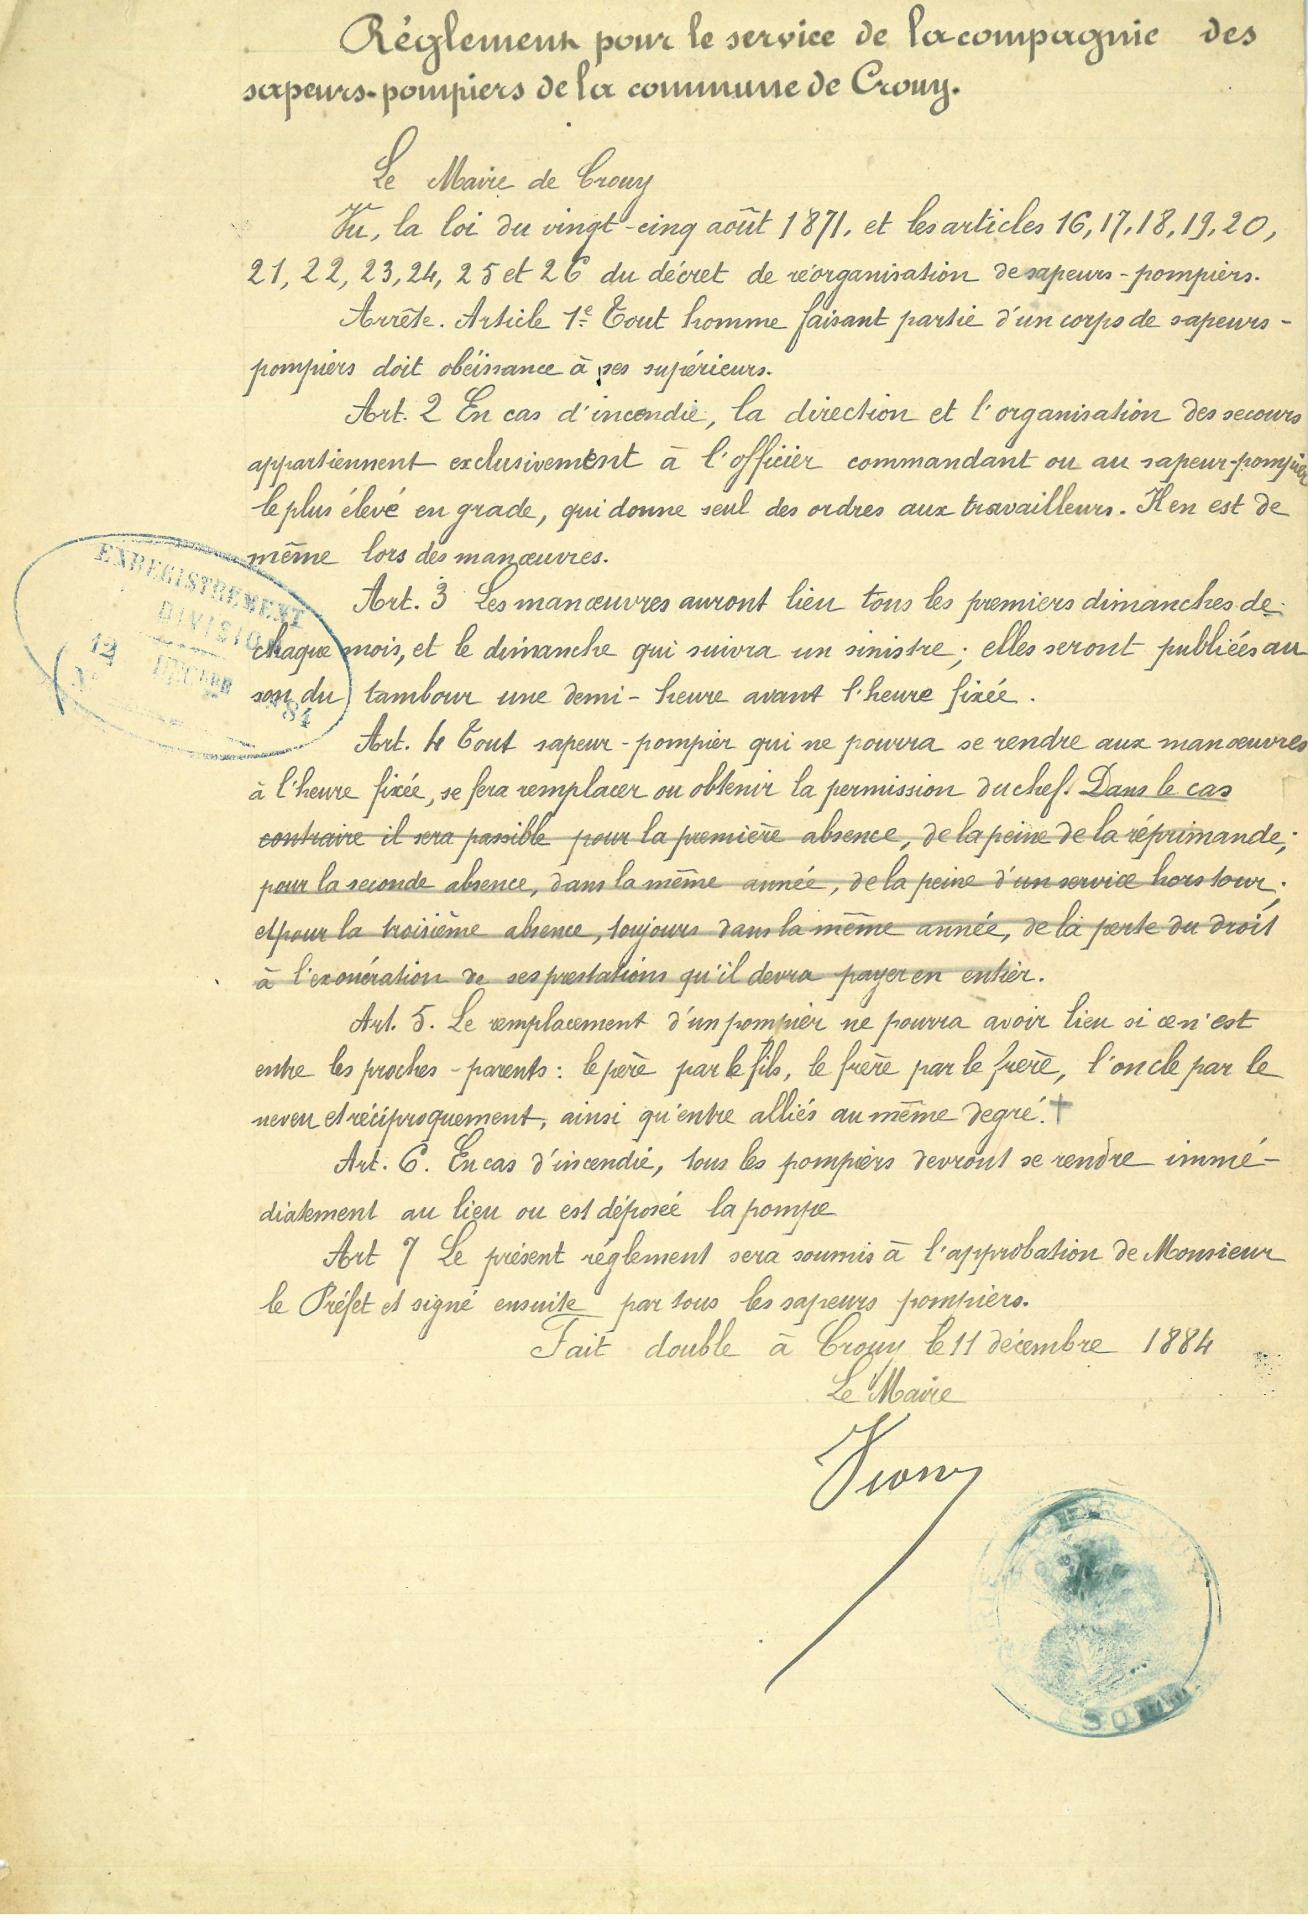 Réglement pour le service de la compagnie des
sapeurs-pompiers de la commune de Crouy.
Le Maire de Crouy
Vu, la loi du vingt-cinq août 1871, et les articles 16, 17, 18, 19, 20,
21, 22, 23, 24, 25 et 26 du décret de réorganisation de sapeurs-pompiers.
Arrête. Article 1e Tout homme faisant partie d'un corps de sapeurs-
pompiers doit obéissance à ses supérieurs.
Art. 2 En cas d'incendie, la direction et l'organisation des secours
appartiennent exclusivement à l'officier commandant ou au sapeur-pompier
le plus élevé en grade, qui donne seul des ordres aux travailleurs. Il en est de
même lors des manœuvres.
ENREGISTREMENT
DIVISION
12 DÉCEMBRE
84
Art. 3 Les manœuvres auront lieu tous les premiers dimanches de
chaque mois, et le dimanche qui suivra un sinistre; elles seront publiées au
son du tambour une demi-heure avant l'heure fixée.
Art. 4 Tout sapeur-pompier qui ne pourra se rendre aux manœuvres
à l'heure fixée, se fera remplacer ou obtenir la permission du chef. Dans le cas
contraire il sera passible pour la première absence, de la peine de la réprimande;
pour la seconde absence, dans la même année, de la peine d'un service hors tour;
et pour la troisième absence, toujours dans la même année, de la perte du droit
à l'exonération de ses prestations qu'il devra payer en entier.
Art. 5. Le remplacement d'un pompier ne pourra avoir lieu si ce n'est
entre les proches-parents: le père par le fils, le frère par le frère, l'oncle par le
neveu et réciproquement, ainsi qu'entre alliés au même degré. +
Art. 6. En cas d'incendie, tous les pompiers devront se rendre immé-
diatement au lieu ou est déposée la pompe
Art 7 Le présent réglement sera soumis à l'approbation de Monsieur
le Préfet et signé ensuite par tous les sapeurs pompiers.
Fait double à Crouy le 11 décembre 1884
Le Maire
(SOMME)